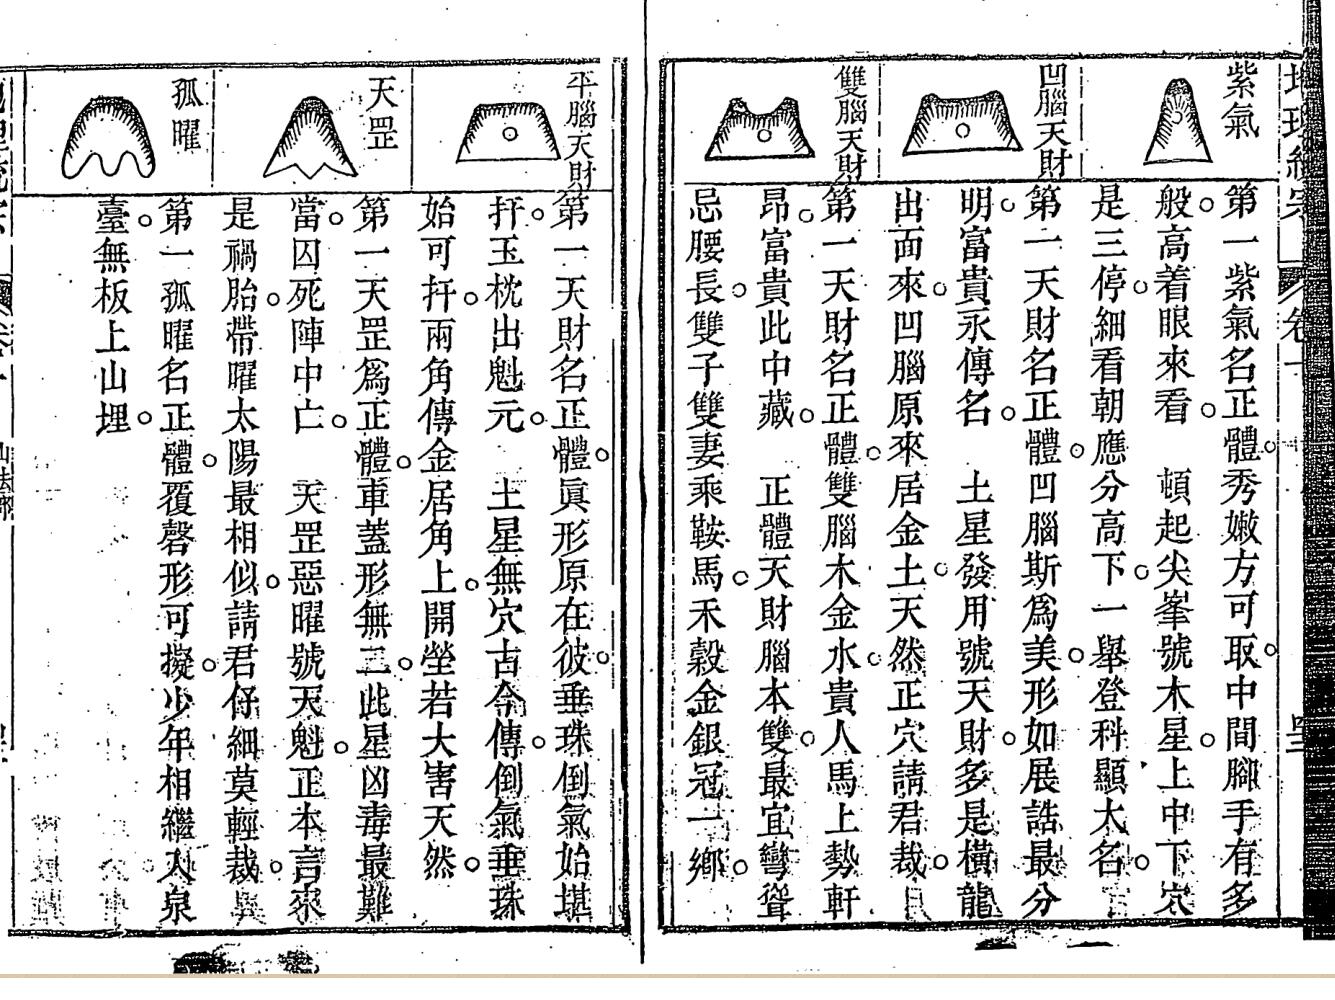 紫氣
第一紫氣名正體。秀嫩方可取。中間腳手有多
般。高着眼來看。　頓起尖峯號木星。上中下穴
是三停。細看朝應分高下。一舉登科顯大名。
凹腦天財
第一天財名正體。凹腦斯爲美。形如展誥最分
明。富貴永傳名。　土星發用號天財。多是橫龍
出面來。凹腦原來居金土。天然正穴請君裁。
雙腦天財
第一天財名正體。雙腦木金水。貴人馬上勢軒
昂。富貴此中藏。　正體天財腦本雙。最宜彎聳
忌腰長。雙子雙妻乘鞍馬。禾穀金銀冠一鄉。
平腦天財
第一天財名正體。眞形原在彼。垂珠倒氣始堪
扦。玉枕出魁元。　土星無穴古今傳。倒氣垂珠
始可扦。兩角傳金居角上。開塋若大害天然。
天罡
第一天罡爲正體。車蓋形無二。此星凶毒最難
當。囚死陣中亡。　天罡惡曜號天魁。正本言來
是禍胎。帶曜太陽最相似。請君仔細莫輕裁。
孤曜
第一孤曜名正體。覆磬形可擬。少年相繼入泉
臺。無板上山埋。